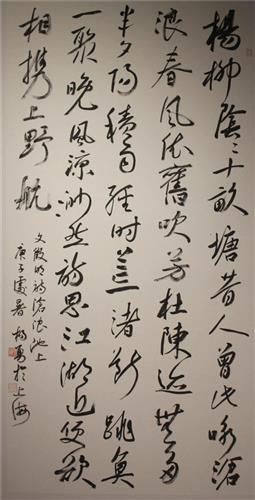 楊柳陰〻十畝塘昔人曾此咏滄
浪春風依舊吹芳杜陳迹無多
半夕陽積雨經時荒渚斷跳魚
一聚晚風涼渺然詩思江湖近便欲
相携上野航
文徵明詩滄浪池上
庚子處暑勇於上海